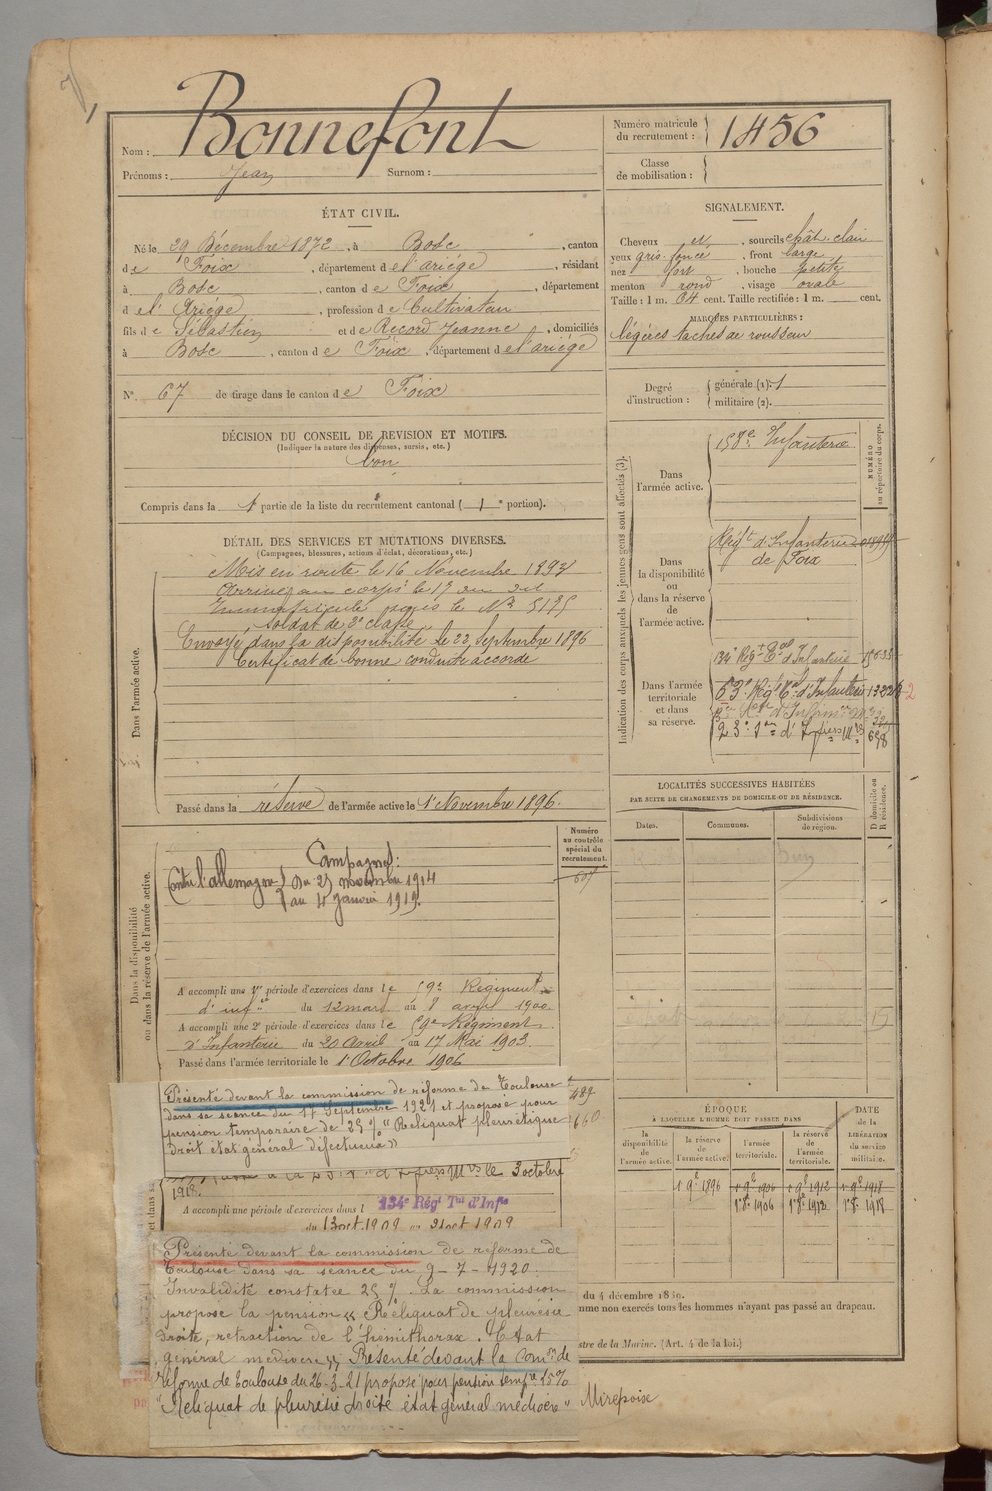 Nom : Bonnefont
Prénoms : Jean Surnom :
Numéro matricule
du recrutement : 1456
Classe
de mobilisation :
ÉTAT CIVIL.
Né le 29 Décembre 1872, à Bosc, canton
de Foix, département de l'ariége, résidant
à Bosc, canton de Foix, département
de l'Ariége, profession de Cultivateur
fils de Sébastien et de Record Jeanne, domiciliés
à Bosc, canton de Foix, département de l'ariége
N° 67 de tirage dans le canton de Foix
DÉCISION DU CONSEIL DE REVISION ET MOTIFS.
(Indiquer la nature des dispenses, sursis, etc.)
bon
Compris dans la 1e partie de la liste du recrutement cantonal ( 1e portion).
DÉTAIL DES SERVICES ET MUTATIONS DIVERSES.
(Campagnes, blessures, actions d'éclat, décorations, etc.)
Dans l'armée active.
Mis en route le 16 Novembre 1893
Arrivé au corps le 17 du dit
Immatriculé sous le N° 5175
Soldat de 2e classe
Envoyé dans la disponibilité le 22 Septembre 1896
Certificat de bonne conduite accordé
Passé dans la réserve de l'armée active le 1er Novembre 1896.
Numéro
au contrôle
spécial du
recrutement.
Dans la disponibilité
ou dans la réserve de l'armée active.
Campagnes :
Contre l'allemagne du 25 novembre 1914
au 4 Janvier 1919.
A accompli une 1re période d'exercices dans le 59e Régiment
d'infie du 12 mars au 8 avril 1900
A accompli une 2e période d'exercices dans le 59e Régiment
d'Infanterie du 20 Avril au 17 Mai 1903.
Passé dans l'armée territoriale le 1er Octobre 1906
Présenté devant la commission de réforme de Toulouse
dans sa séance du 17 Septembre 1921 et proposé pour
pension temporaire de 25 % "Reliquat pleurétique
droit état général défectueux"
le 3 octobre
1918.
A accompli une période d'exercices dans l 134e Régt Tal d'Infie
du 13 oct. 1909 au 21 oct 1909
Présenté devant la commission de réforme de
Toulouse dans sa séance du 9-7-1920.
Invalidité constatée 25 %. La commission
propose la pension « Reliquat de pleurésie
droite, rétraction de l'hémithorax. Etat
général médiocre ». Présenté devant la Comon de
réforme de Toulouse du 26-3-21 proposé pour pension tempre 15%
"Reliquat de pleurésie droite état général médiocre"
SIGNALEMENT.
Cheveux et, sourcils chât. clair
yeux gris foncé, front large
nez fort, bouche petite
menton rond, visage ovale
Taille : 1 m. 64 cent. Taille rectifiée : 1 m. cent.
MARQUES PARTICULIÈRES :
légères taches de rousseur
Degré
d'instruction :
générale (1): 1
militaire (2).
Indication des corps auxquels les jeunes gens sont affectés (3).
NUMÉRO
au répertoire du corps.
Dans
l'armée active.
158e Infanterie
Dans
la disponibilité
ou
dans la réserve
de
l'armée active.
Régt d'Infanterie
de Foix
Dans l'armée
territoriale
et dans
sa réserve.
134e Régt Tal d'Infanterie
63e Régt Tal d'Infanterie
658
LOCALITÉS SUCCESSIVES HABITÉES
PAR SUITE DE CHANGEMENTS DE DOMICILE OU DE RÉSIDENCE.
Dates.
Communes.
Subdivisions
de région.
D domicile ou
R résidence.
ÉPOQUE
À LAQUELLE L'HOMME DOIT PASSER DANS
DATE
de la
LIBÉRATION
du service
militaire.
la
disponibilité
de l'armée active.
la réserve
de
l'armée active.
l'armée
territoriale.
la réserve
de
l'armée
territoriale.
1 9bre 1896 1 9bre 1906 1 9bre 1912 1 9bre 1918
1 8bre 1906 1 8bre 1912 1 8bre 1918
du 4 décembre 1889.
mme non exercés tous les hommes n'ayant pas passé au drapeau.
stre de la Marine. (Art. 4 de la loi.)
Mirepoix